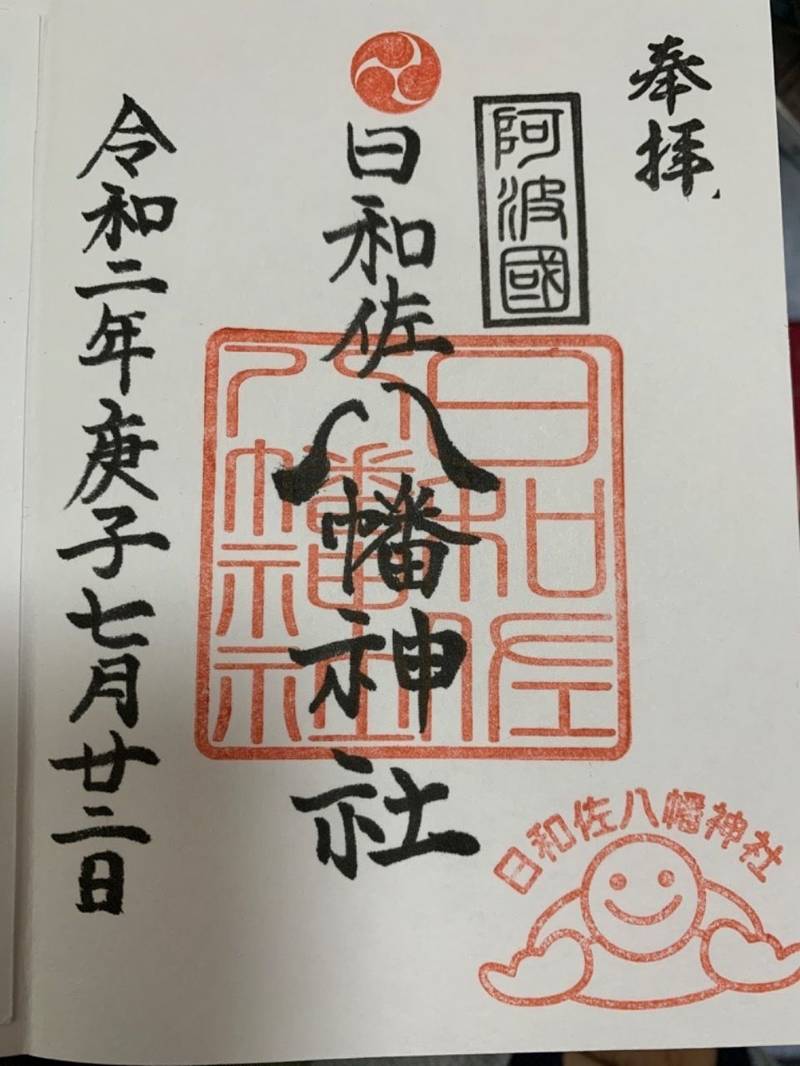 奉拝
阿波國
日和佐八幡神社
日和佐八幡神社
令和二年庚子七月廿二日
日和佐八幡神社